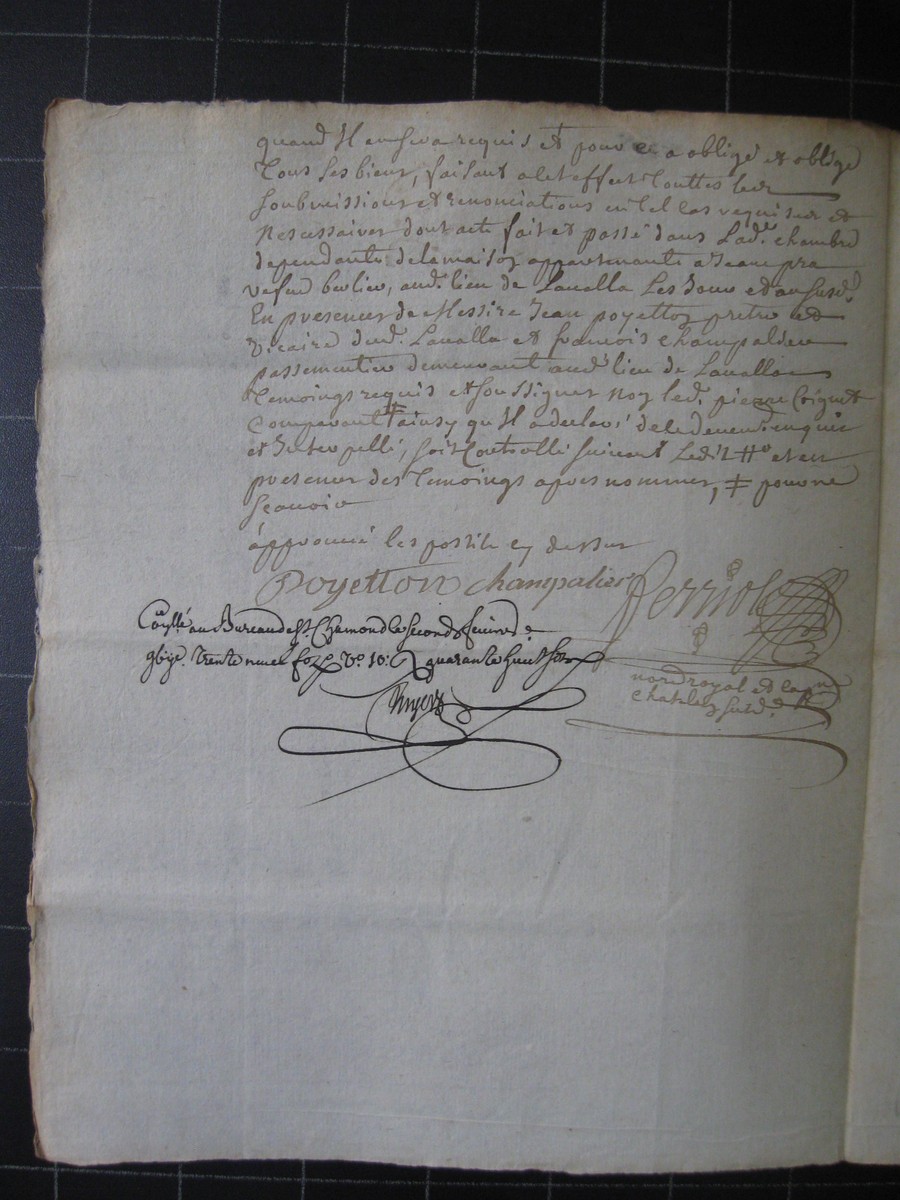 quand Il en sera requis et pour ce a obligé et oblige
Tous ses biens, faisant a cet effet Touttes les
Soubmissions et renonciations en tel cas requises et
Nescessaires dont acte fait et passé dans Lad.e chambre
dependante de la maison appartenante a Jean pra
au d. lieu de Lavalla Les Jour et an susd.
En presence de Messire Jean poyetton pretre et
Vicaire dud. Lavalla et francois champalier
passementier demeurant aud. lieu de Lavalla
Temoings requis et soussignes non led. pierre Coignet
Comparant ‡ ainsy qu Il a declaré de ce deuem.t enquis
et Interpellé, soit Controllé suivant Ledit et en
presence des Temoings apres nommes, ‡ pour ne
scavoir
approuvé les postile en dessus
Poyetton champalier Perriole
Con.llé au Bureau de St Chamond le second
trente neuf V.o quarante huit sols
not.re royal et
chatelain susd.